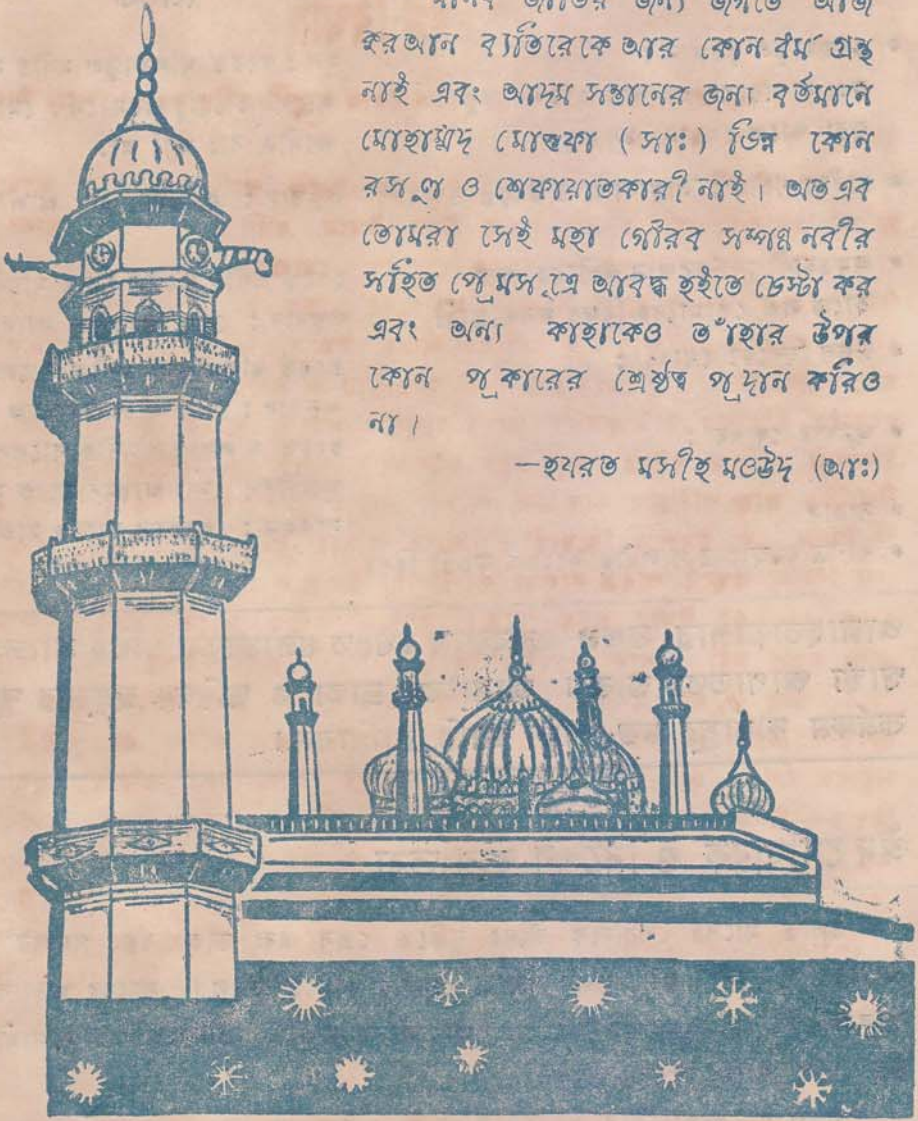 মানব জাতির জন্য জগতে আজ
কুরআন ব্যতিরেকে আর কোন ধর্ম গ্রন্থ
নাই এবং আদম সন্তানের জন্য বর্তমানে
মোহাম্মাদ মোস্তফা (সাঃ) ভিন্ন কোন
রসূল ও শেফায়াতকারী নাই। অতএব
তোমরা সেই মহা গৌরব সম্পন্ন নবীর
সহিত প্রেমসূত্রে আবদ্ধ হইতে চেস্টা কর
এবং অন্য কাহাকেও তাঁহার উপর
কোন প্রকারের শ্রেষ্ঠত্ব প্রদান করিও
না।
—হযরত মসীহ মওউদ (আঃ)